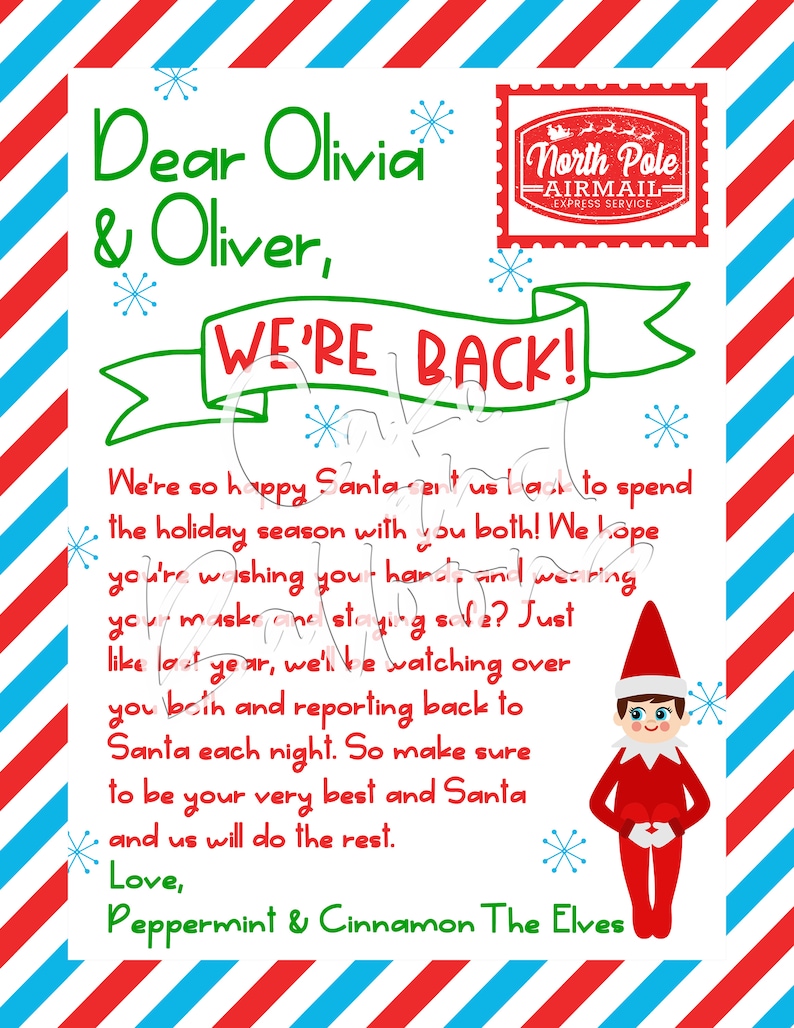 Dear Olivia
& Oliver,
North Pole
AIRMAIL
EXPRESS SERVICE
WE'RE BACK!
Cake
and
Balloons
We're so happy Santa sent us back to spend
the holiday season with you both! We hope
you're washing your hands and wearing
your masks and staying safe? Just
like last year, we'll be watching over
you both and reporting back to
Santa each night. So make sure
to be your very best and Santa
and us will do the rest.
Love,
Peppermint & Cinnamon The Elves